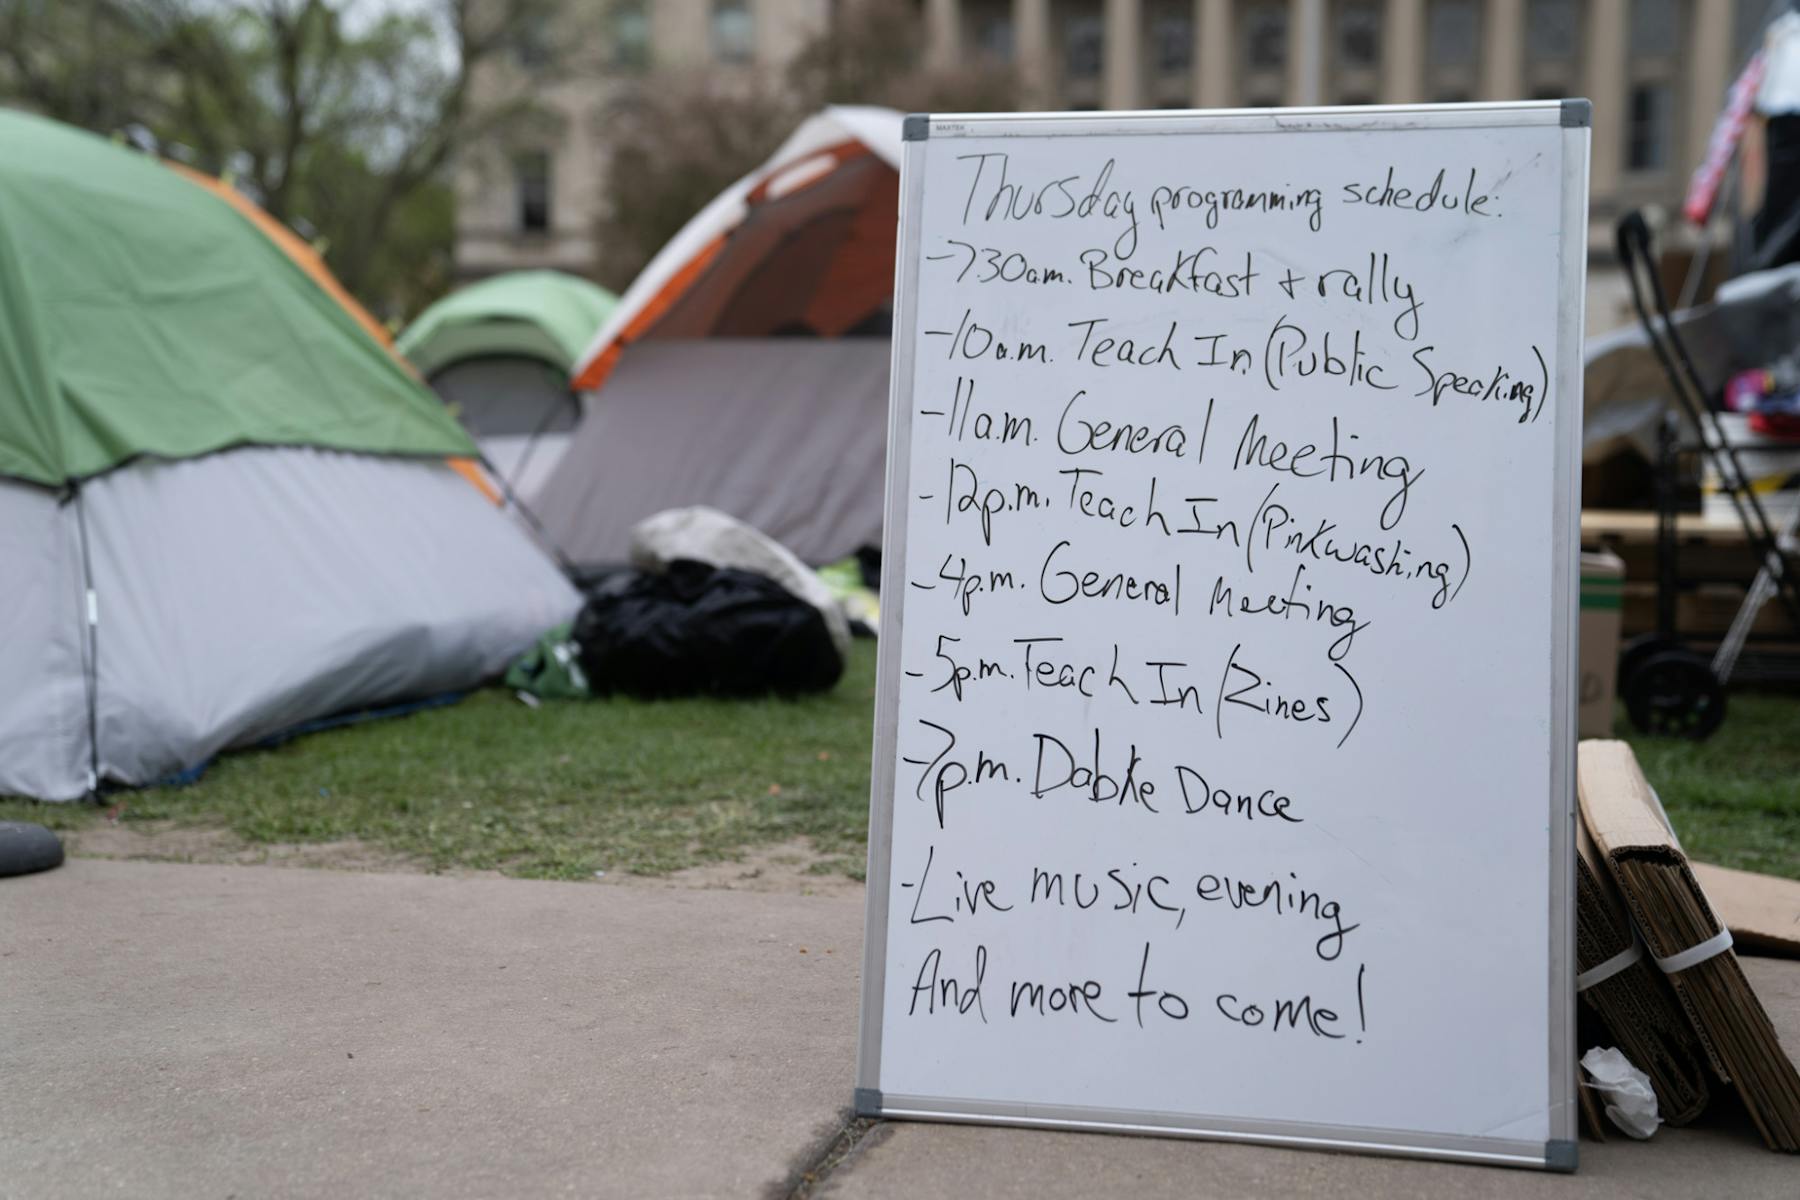 MAXTEK
Thursday programming schedule:
-7:30a.m. Breakfast + rally
-10a.m. Teach In (Public Speaking)
-11a.m. General Meeting
-12p.m. Teach In (Pinkwashing)
-4p.m. General Meeting
-5p.m. Teach In (Zines)
-7p.m. Dabke Dance
-Live music, evening
And more to come!